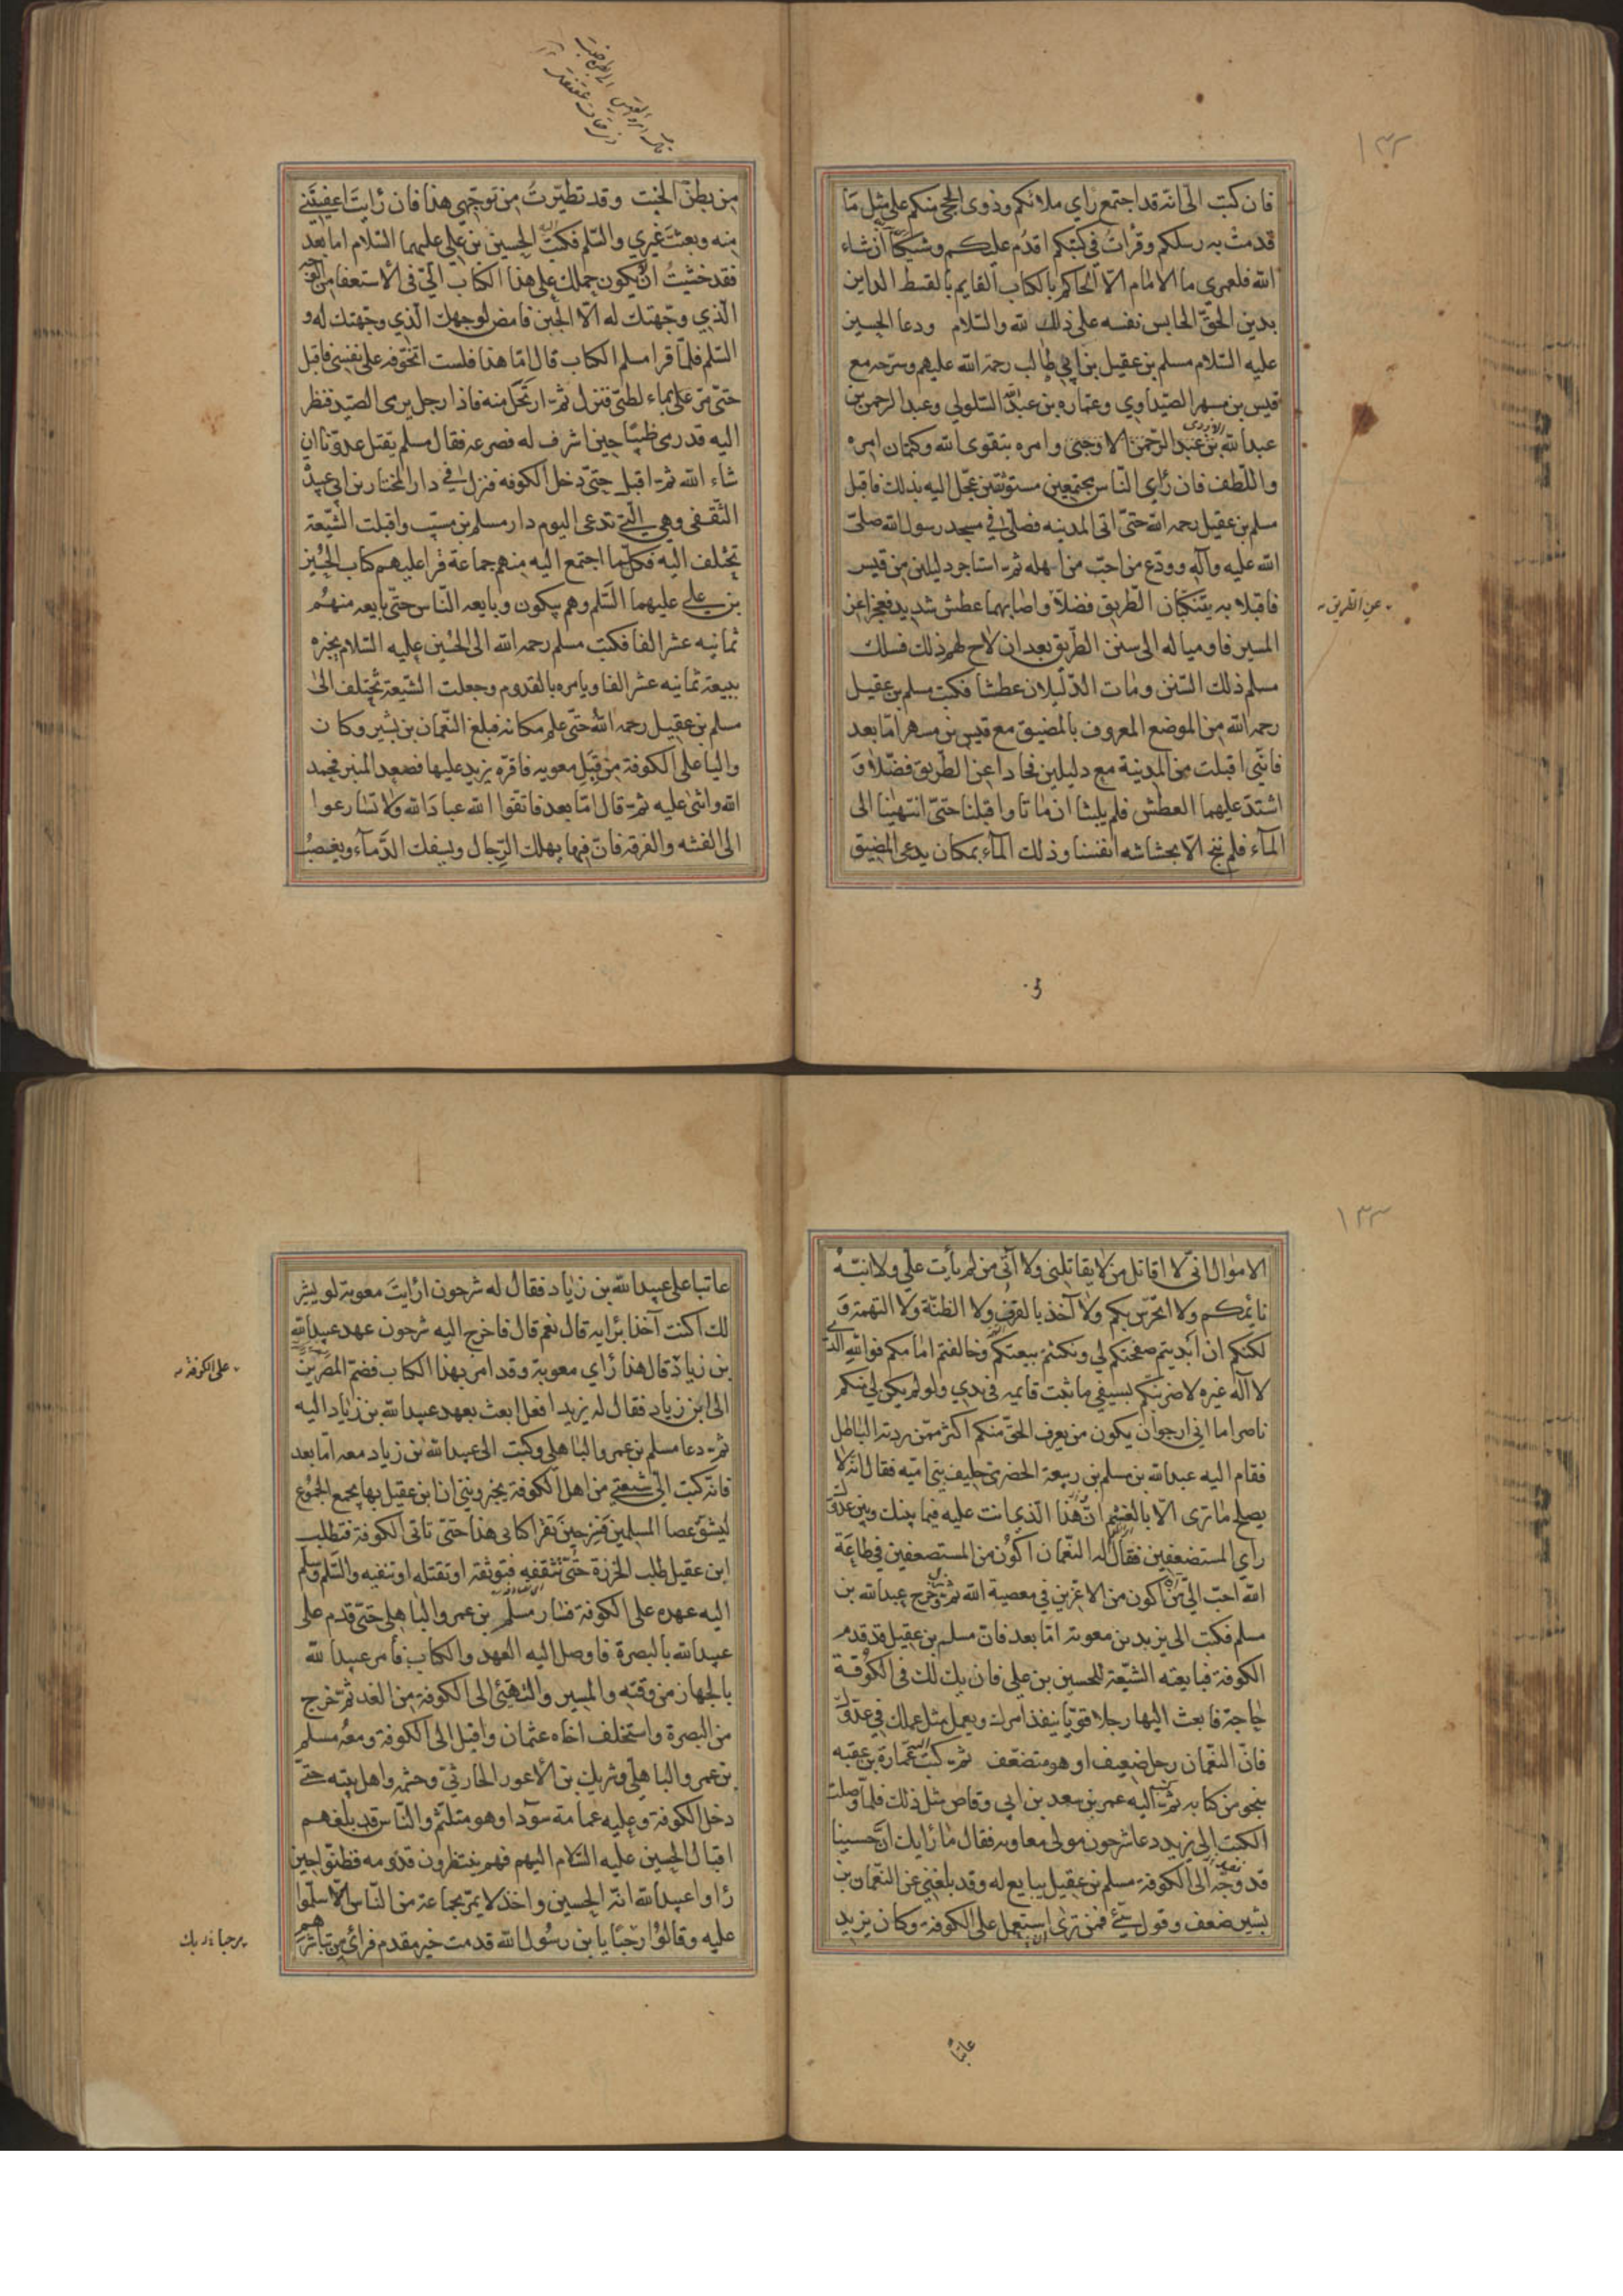 ١٣٢
فان كتب الىّ انه قد اجتمع رأي ملائكم وذوى الحجى منكم على مثل ما
قدمت به رسلكم وقرأت في كتبكم اقدم عليكم وشيكا ان شاء
الله فلعمري ما الامام الا الحاكم بالكتاب القايم بالقسط الداين
بدين الحق الحابس نفسه على ذلك لله والسلام ودعا الحسين
عليه السلام مسلم بن عقيل بن ابي طالب رحمة الله عليهم وسرحه مع
قيس بن مسهر الصيداوي وعماره بن عبد الله السلولي وعبد الرحمن بن
عبد الله بن عبد الرحمن الارحبى وامره بتقوى الله وكتمان امره
واللطف فان رأي الناس مجتمعين مستوثقين عجل اليه بذلك فاقبل
مسلم بن عقيل رحمه الله حتى اتى المدينه فصلى في مسجد رسول الله صلى
الله عليه وآله وودع من احب من اهله ثم استاجر دليلين من قيس
فاقبلا به يتنكبان الطريق فضلا واصابهما عطش شديد فعجزا عن
عن الطريق
المسير فاوميا له الى سنن الطريق بعد ان لاح لهم ذلك فسلك
مسلم ذلك السنن ومات الدليلان عطشا فكتب مسلم بن عقيل
رحمه الله من الموضع المعروف بالمضيق مع قيس بن مسهر اما بعد
فانني اقبلت من المدينة مع دليلين فحادا عن الطريق فضلا و
اشتد عليهما العطش فلم يلبثا ان ماتا واقبلنا حتى انتهينا الى
الماء فلم ننج الا بحشاشه انفسنا وذلك الماء بمكان يدعى المضيق
من بطن الخبت وقد تطيرت من توجهي هذا فان رايت اعفيتني
منه وبعثت غيري والسلم فكتب اليه الحسين بن علي عليهما السلام اما بعد
فقد خشيت ان يكون حملك على هذا الكتاب الىّ في الاستعفا من الوجه
الذي وجهتك له الا الجبن فامض لوجهك الذي وجهتك له و
السلم فلما قرا مسلم الكتاب قال اما هذا فلست اتخوفه على نفسي فاقبل
حتى مر على بماء لطي فنزل ثم ارتحل منه فاذا رجل يرمى الصيد فنظر
اليه قد رمى ظبيا حين اشرف له فصرعه فقال مسلم يقتل عدونا ان
شاء الله ثم اقبل حتى دخل الكوفه فنزل في دار المختار بن ابي عبيد
الثقفى وهي التي تدعى اليوم دار مسلم بن مسيب واقبلت الشيعة
تختلف اليه فكلما اجتمع اليه منهم جماعة قرا عليهم كتاب الحسين
بن علي عليهما السلم وهم يبكون وبايعه الناس حتى بايعه منهم
ثمانيه عشر الفا فكتب مسلم رحمه الله الى الحسين عليه السلام يخبره
ببيعة ثمانيه عشر الفا ويامره بالقدوم وجعلت الشيعة تختلف الى
مسلم بن عقيل رحمه الله حتى علم مكانه فبلغ النعمان بن بشير وكان
واليا على الكوفة من قبل معويه فاقره يزيد عليها فصعد المنبر فحمد
الله واثنى عليه ثم قال اما بعد فاتقوا الله عباد الله ولا تسارعوا
الى الفتنه والفرقة فان فيها يهلك الرجال ويسفك الدماء ويغصب
١٣٣
الاموال اني لا اقاتل من لا يقاتلني ولا آتى من لم يأت علي ولا انبه
نايمكم ولا اتحرش بكم ولا آخذ بالقرف ولا الظنة ولا التهمة و
لكنكم ان ابديتم صفحتكم لي ونكثتم بيعتكم وخالفتم امامكم فوالله الذي
لا اله غيره لاضربنكم بسيفي ما ثبت قايمه في يدي ولو لم يكن لي منكم
ناصر اما اني ارجو ان يكون من يعرف الحق منكم اكثر ممن يرديه الباطل
فقام اليه عبد الله بن مسلم بن ربيعة الحضرمى حليف بني اميه فقال انه لا
يصلح ما ترى الا بالغشم ان هذا الذي انت عليه فيما بينك وبين عدوك
رأي المستضعفين فقال له النعمان اكون من المستضعفين في طاعة
الله احب الي من ان اكون من الاعزين في معصية الله ثم نزل وخرج عبد الله بن
مسلم فكتب الى يزيد بن معوية اما بعد فان مسلم بن عقيل قد قدم
الكوفة فبايعته الشيعة للحسين بن علي فان يك لك في الكوفة
حاجة فابعث اليها رجلا قويا ينفذ امرك ويعمل مثل عملك في عدوك
فان النعمان رجل ضعيف او هو متضعف ثم كتب اليه عمارة بن عقبه
بنحو من كتابه ثم كتب اليه عمر بن سعد بن ابي وقاص مثل ذلك فلما وصلت
الكتب الى يزيد دعا سرجون مولى معاويه فقال ما رأيك ان حسينا
قد وجه الى الكوفة مسلم بن عقيل يبايع له وقد بلغني عن النعمان بن
بشير ضعف وقول سيئ فمن ترى ان استعمل على الكوفة وكان يزيد
عاتبا
عاتبا على عبيد الله بن زياد فقال له سرجون ارايت معوية لو يشير
لك اكنت آخذا برايه قال نعم قال فاخرج اليه سرجون عهد عبيد الله
بن زياد قال هذا رأي معوية وقد امر بهذا الكتاب فضم المصرين
على الكوفة
الى ابن زياد فقال له يزيد افعل ابعث بعهد عبيد الله بن زياد اليه
ثم دعا مسلم بن عمرو الباهلي وكتب الى عبيد الله بن زياد معه اما بعد
فانه كتب الي شيعتي من اهل الكوفة يخبروننى ان ابن عقيل بها يجمع الجموع
ليشق عصا المسلمين فسر حين تقرأ كتابى هذا حتى تاتى الكوفة فتطلب
ابن عقيل طلب الخرزة حتى تثقفه فتوثقه او تقتله او تنفيه والسلم وسلم
اليه عهده على الكوفة فسار مسلم بن عمرو الباهلي حتى قدم على
عبيد الله بالبصرة فاوصل اليه العهد والكتاب فأمر عبيد الله
بالجهاز من وقته والمسير والتهيئ الى الكوفة من الغد ثم خرج
من البصرة واستخلف اخاه عثمان واقبل الى الكوفة ومعه مسلم
بن عمرو الباهلي وشريك بن الاعور الحارثي وحشمه واهل بيته حتى
دخل الكوفة وعليه عمامة سودا وهو متلثم والناس قد بلغهم
اقبال الحسين عليه السلام اليهم فهم ينتظرون قدومه فظنوا حين
راوا عبيد الله انه الحسين واخذ لا يمر بجماعة من الناس الا سلموا
عليه وقالوا مرحبا يا بن رسول الله قدمت خير مقدم فرأى من تباشرهم